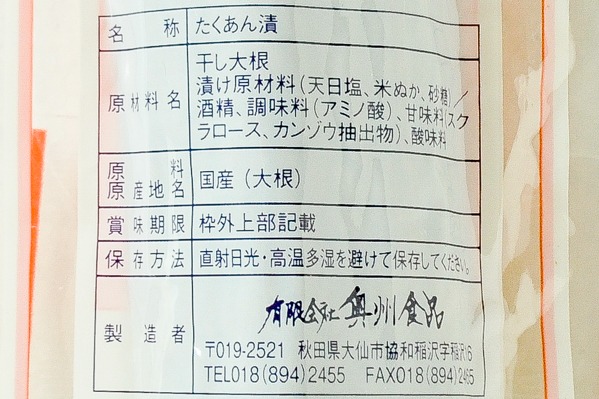 名称 たくあん漬
原材料名 干し大根
漬け原材料(天日塩、米ぬか、砂糖)/
酒精、調味料(アミノ酸)、甘味料(スク
ラロース、カンゾウ抽出物)、酸味料
原料
原産地名 国産(大根)
賞味期限 枠外上部記載
保存方法 直射日光・高温多湿を避けて保存してください。
製造者 有限会社 奥州食品
〒019-2521 秋田県大仙市協和稲沢字稲沢16
TEL018(894)2455 FAX018(894)2465